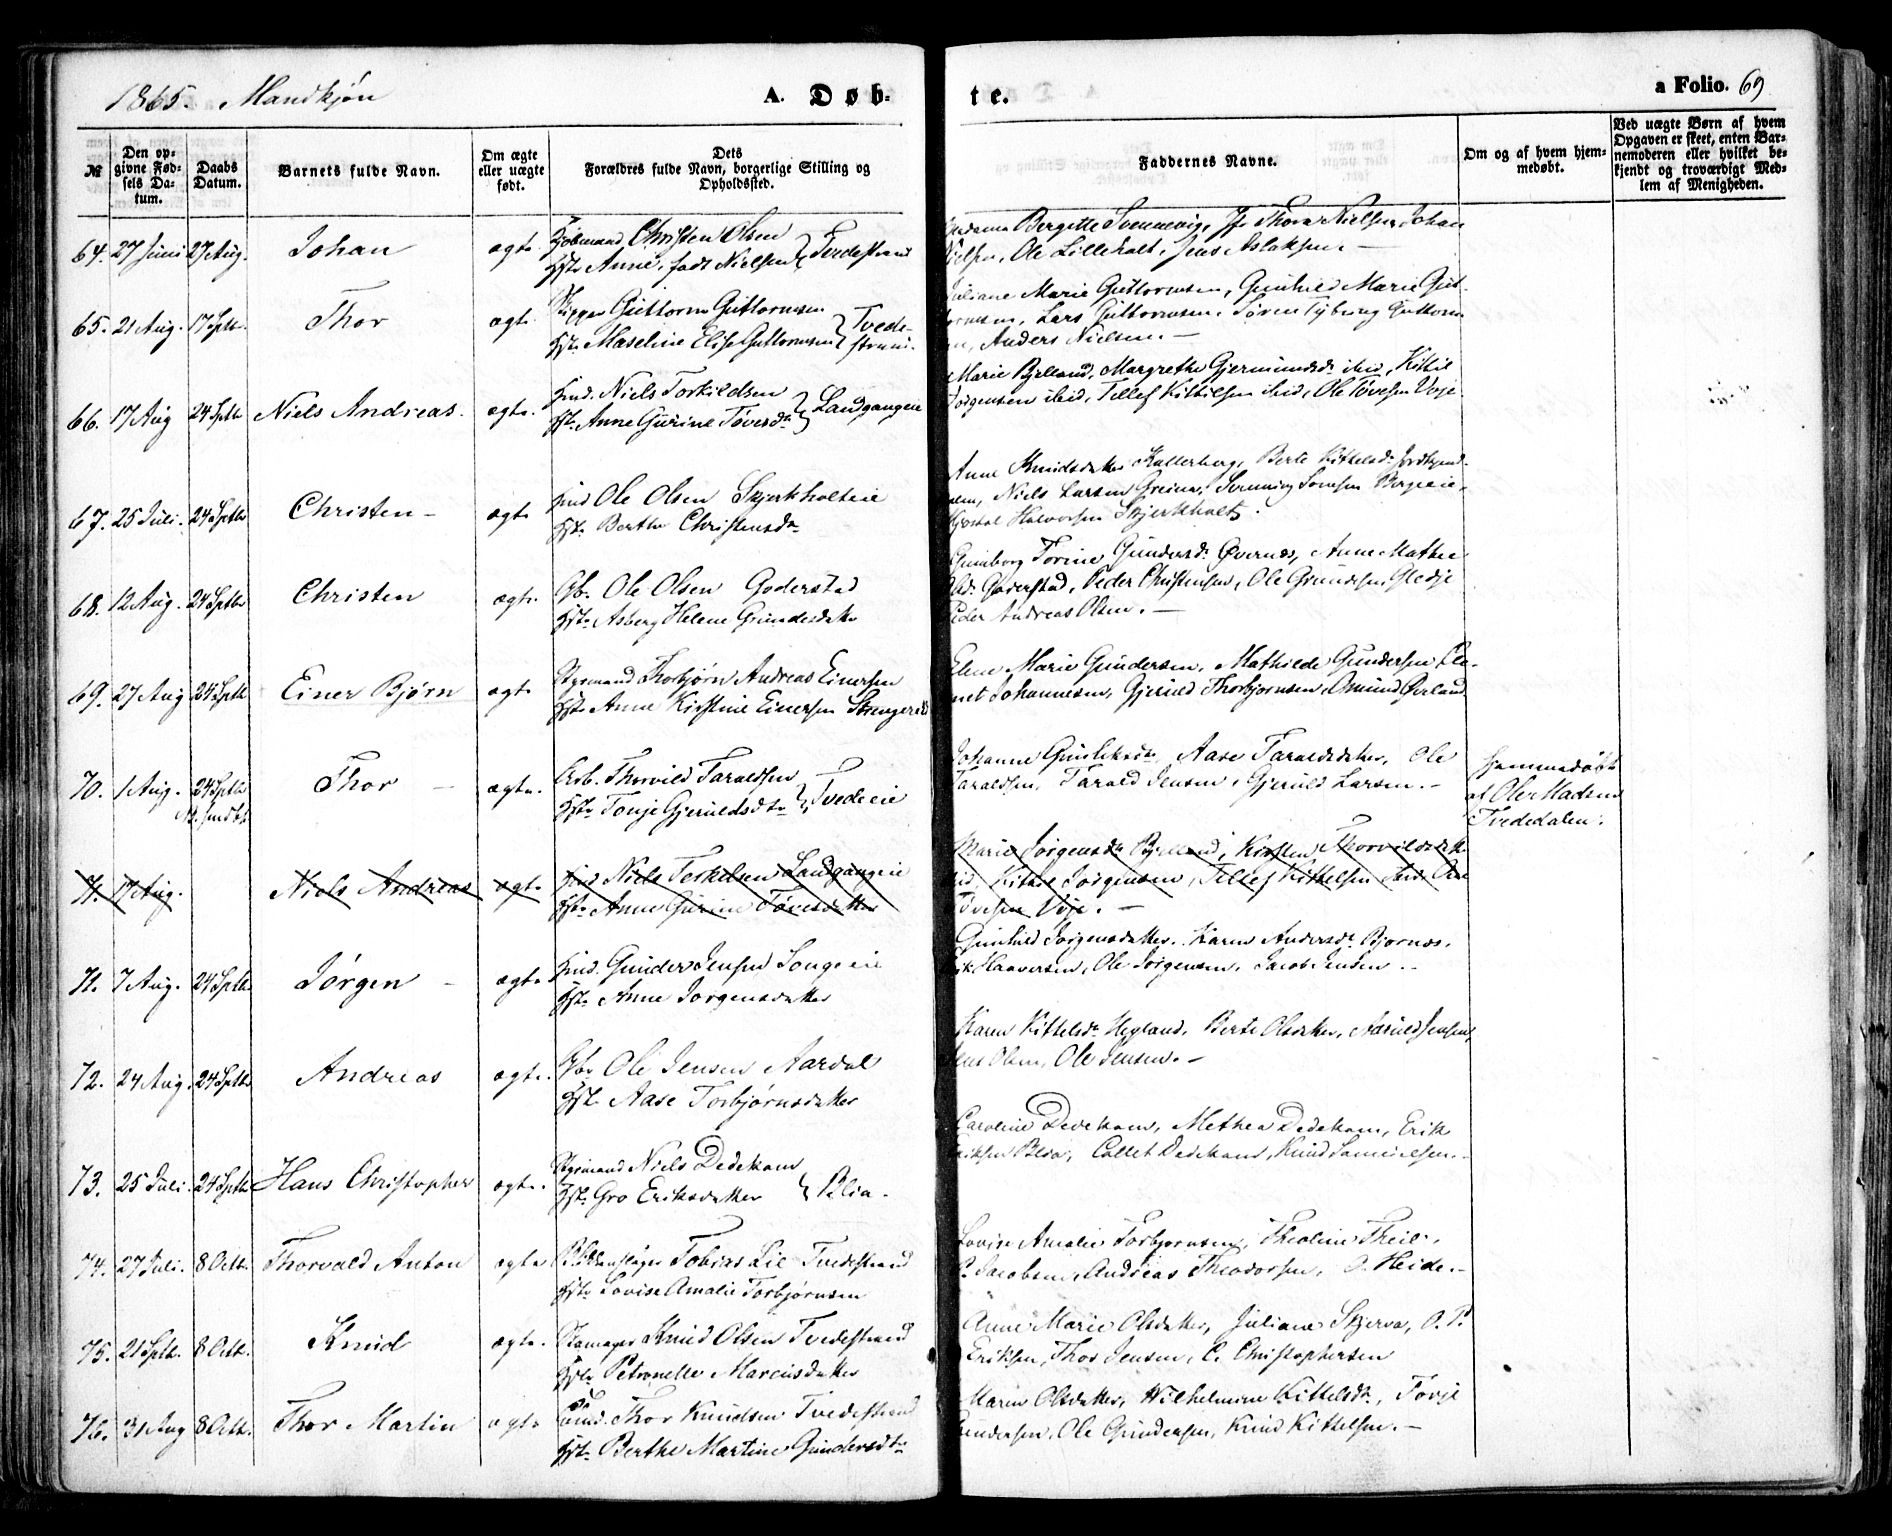 1865. Mandkjøn
A. Døb-
te.
a Folio. 69
№
Den op-
givne Fød-
sels Da-
tum.
Daabs
Datum.
Barnets fulde Navn.
Om ægte
eller uægte
født.
Dets
Forældres fulde Navn, borgerlige Stilling og
Opholdssted.
Faddernes Navne.
Om og af hvem hjem-
medøbt.
Ved uægte Børn af hvem
Opgaven er skeet, enten Bar-
nemoderen eller hvilket be-
kjendt og troværdigt Med-
lem af Menigheden.
64. 27 Juni 27 Aug. Johan ægte Christen Olsen
Anne, født Nielsen } Tvedestrand
Bergitte Svennevig, Thora Nielsen, Johan
Nielsen, Ole Lilleholt, Jens Aslaksen. —
65. 21 Aug. 17 Sptb. Thor ægte. Skipper Guttorm Guttormsen
Hst. Maseline Elise Guttormsen } Tvede-
strand.
Juliane Marie Guttormsen, Gunhild Marie Gut-
tormsen, Lars Guttormsen, Søren Tyberg Guttorm
Anders Nielsen. —
66. 17 Aug 24 Sptb Niels Andreas. ægte. Hmd. Niels Torkildsen
Hst. Anne Gurine Tøvesdtr } Landgangeie
Marie Bjelland, Margrethe Gjermundsdtr ibid, Kittil
Jørgensen ibid, Tellef Kittilsen ibid, Ole Tøvesen Voje.
67. 25 Juli. 24 Sptb Christen — ægte Hmd Ole Olsen Skjerkholteie
Hst. Berthe Christensdtr
Anne Knudsdatter Kallerberg, Berte Kittelsdtr
Niels Larsen Greina, Berge
Halvorsen Skjerkholt.
68. 12 Aug. 24 Sptb Christen ægte. Gb. Ole Olsen Goderstad
Hst. Asberg Helene Grundesdatter
Gunborg Torine Gundersdtr Øvernes, Anne Mathea
Olsdtr Goderstad, Peder Christensen, Ole Grundesen Gledje
Peder Andreas Olsen. —
69. 27 Aug 24 Sptb Einer Bjørn ægte Styrmand Thorbjørn Andreas Einersen
Hst. Anne Kirstine Einersen Strengereid
Elene Marie Gundersen, Mathilde Gundersen
Johannesen, Gjeruld Thorbjørnsen Omund Øveland
70. 1 Aug. 24 Sptb Thor — ægte. Arb. Thorvild Taraldsen
Hst. Tonje Gjeruldsdtr } Tvedeeie
Johanne Gunleksdtr, Aase Taraldsdatter, Ole
Taraldsen, Tarald Jensen, Gjeruld Larsen. —
Hjemmedøbt
af Ole Madsen
Tvededalen.
71. 17 Aug. Niels Andreas ægte Hmd Niels Terkelsen Landgangeie
Hst. Anne Gurine Tøvesdatter
Marie Jørgensdtr Bjelland, Kirsten Thorvildsdatter
ibid, Kittel Jørgensen, Tellef Kittelsen ibid. Ole
Tøvesen Voje. —
71. 7 Aug. 24 Sptb Jørgen — ægte Hmd. Gunder Jensen Songeeie
Hst. Anne Jørgensdatter
Gunhild Jørgensdatter. Karen Andersdtr Bjørnæs.
Haaversen, Ole Jørgensen, Jacob Jensen. —
72. 24 Aug. 24 Sptb Andreas ægte. Gbr Ole Jensen Aardal
Hst. Aase Torbjørnsdatter
Karen Kittelsdtr Hegland, Berte Olsdatter, Aanuld Jensen,
Jens Olsen, Ole Jensen. —
73. 25 Juli. 24 Sptb Hans Christopher ægte. Styrmand Niels Dedekam
Hst. Gro Eriksdatter } Blia.
Caroline Dedekam, Methea Dedekam, Erik
Eriksen Blia, Collet Dedekam, Knud Samuelsen. —
74. 27 Juli. 8 Octb. Thorvald Anton ægte Blikkenslager Tobias Lie Tvedestrand
Hst. Lovise Amalie Torbjørnsen
Lovise Amalie Torbjørnsen, Theoline Theil.
P. Jacobsen, Andreas Theodorsen, O. Heide. —
75. 21 Sptb. 8 Octb. Knud ægte. Knud Olsen Tvedestrand
Hst. Petronelle Marcusdatter
Anne Marie Olsdatter, Juliane Skjerva, O. P.
Eriksen, Thor Jensen, C. Christophersen
76. 31 Aug 8 Octb. Thor Martin ægte Hmd. Thor Knudsen Tvedestrand
Hst. Berthe Martine Gundersdtr
Maren Olsdatter, Wilhelmine Kittelsdtr, Tovje
Gundersen, Ole Gundersen, Knud Kittelsen. —